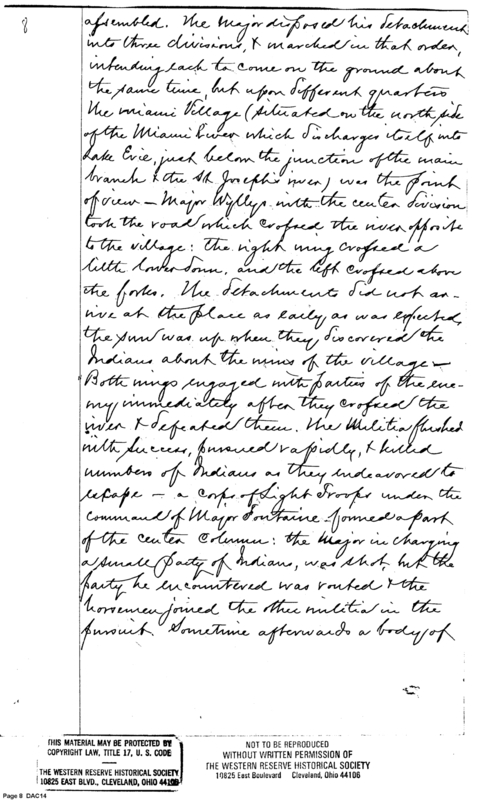 8
assembled. The Major disposed his detachment
into three divisions, & marched in that order,
intending each to come on the ground about
the same time, but upon different quarters
The Miami Village (situated on the north side
of the Miami River which discharges itself into
Lake Erie, just below the junction of the main
branch & the St. Joseph's river) was the point
of view – Major Wyllys with the center division
took the road which crossed the river opposite
to the village: the right wing crossed a
little lower down, and the left crossed above
the forks. The detachments did not ar-
rive at the place as early as was expected,
the sun was up when they discovered the
Indians about the ruins of the village –
Both wings engaged with parties of the ene-
my, immediately after they crossed the
river & defeated them. The Militia flushed
with success, pursued rapidly, & killed
numbers of Indians as they endeavored to
escape – a corps of Light Troops under the
command of Major Fontaine formed a part
of the center Column: the Major in charging
a small party of Indians, was shot, but the
party he encountered was routed & the
horsemen joined the other militia in the
pursuit. Sometime afterwards a body of
THIS MATERIAL MAY BE PROTECTED BY
COPYRIGHT LAW, TITLE 17, U. S. CODE
THE WESTERN RESERVE HISTORICAL SOCIETY
10825 EAST BLVD., CLEVELAND, OHIO 44106
NOT TO BE REPRODUCED
WITHOUT WRITTEN PERMISSION OF
THE WESTERN RESERVE HISTORICAL SOCIETY
10825 East Boulevard Cleveland, Ohio 44106
Page 8 DAC14